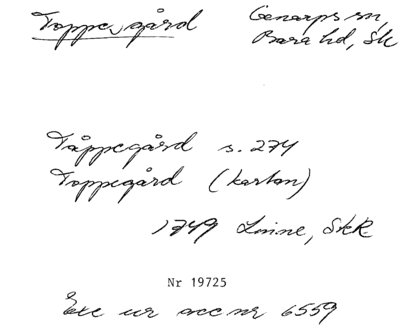 Toppegård Genarps sn,
Bara hd, Sk
Tåppegård s. 274
Toppegård (kartan)
1749 Linne, SkR.
Nr 19725
Exc ur acc nr 6559